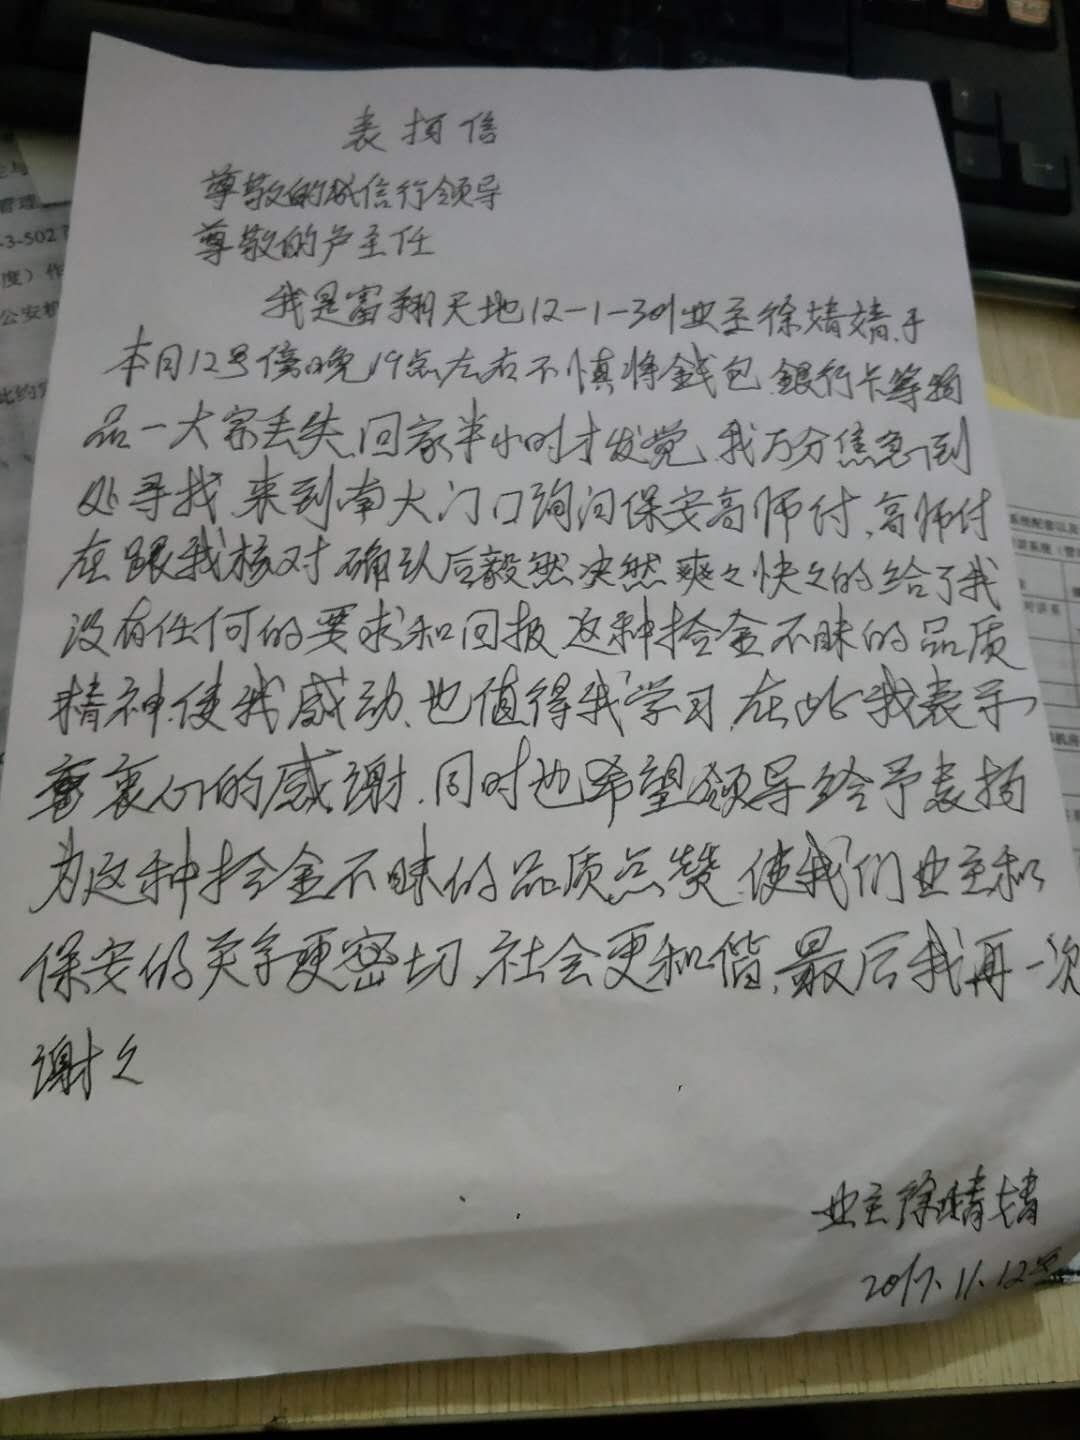 表扬信
尊敬的诚信行领导
尊敬的卢主任
我是富翔天地12-1-301业主徐婧婧,于
本月12号傍晚19点左右不慎将钱包.银行卡等物
品一大宗丢失,回家半小时才发觉,我万分焦急到
处寻找,来到南大门口询问保安高师付,高师付
在跟我核对确认后毅然决然爽々快々的给了我
没有任何的要求和回报,这种拾金不昧的品质
精神,使我感动、也值得我学习,在此我表示
衷心的感谢.同时也希望领导给予表扬
为这种拾金不昧的品质点赞,使我们业主和
保安的关系更密切,社会更和谐,最后我再一次
谢々
业主徐婧婧
2017.11.12号
管理
-3-502
度）作
公安机
比约